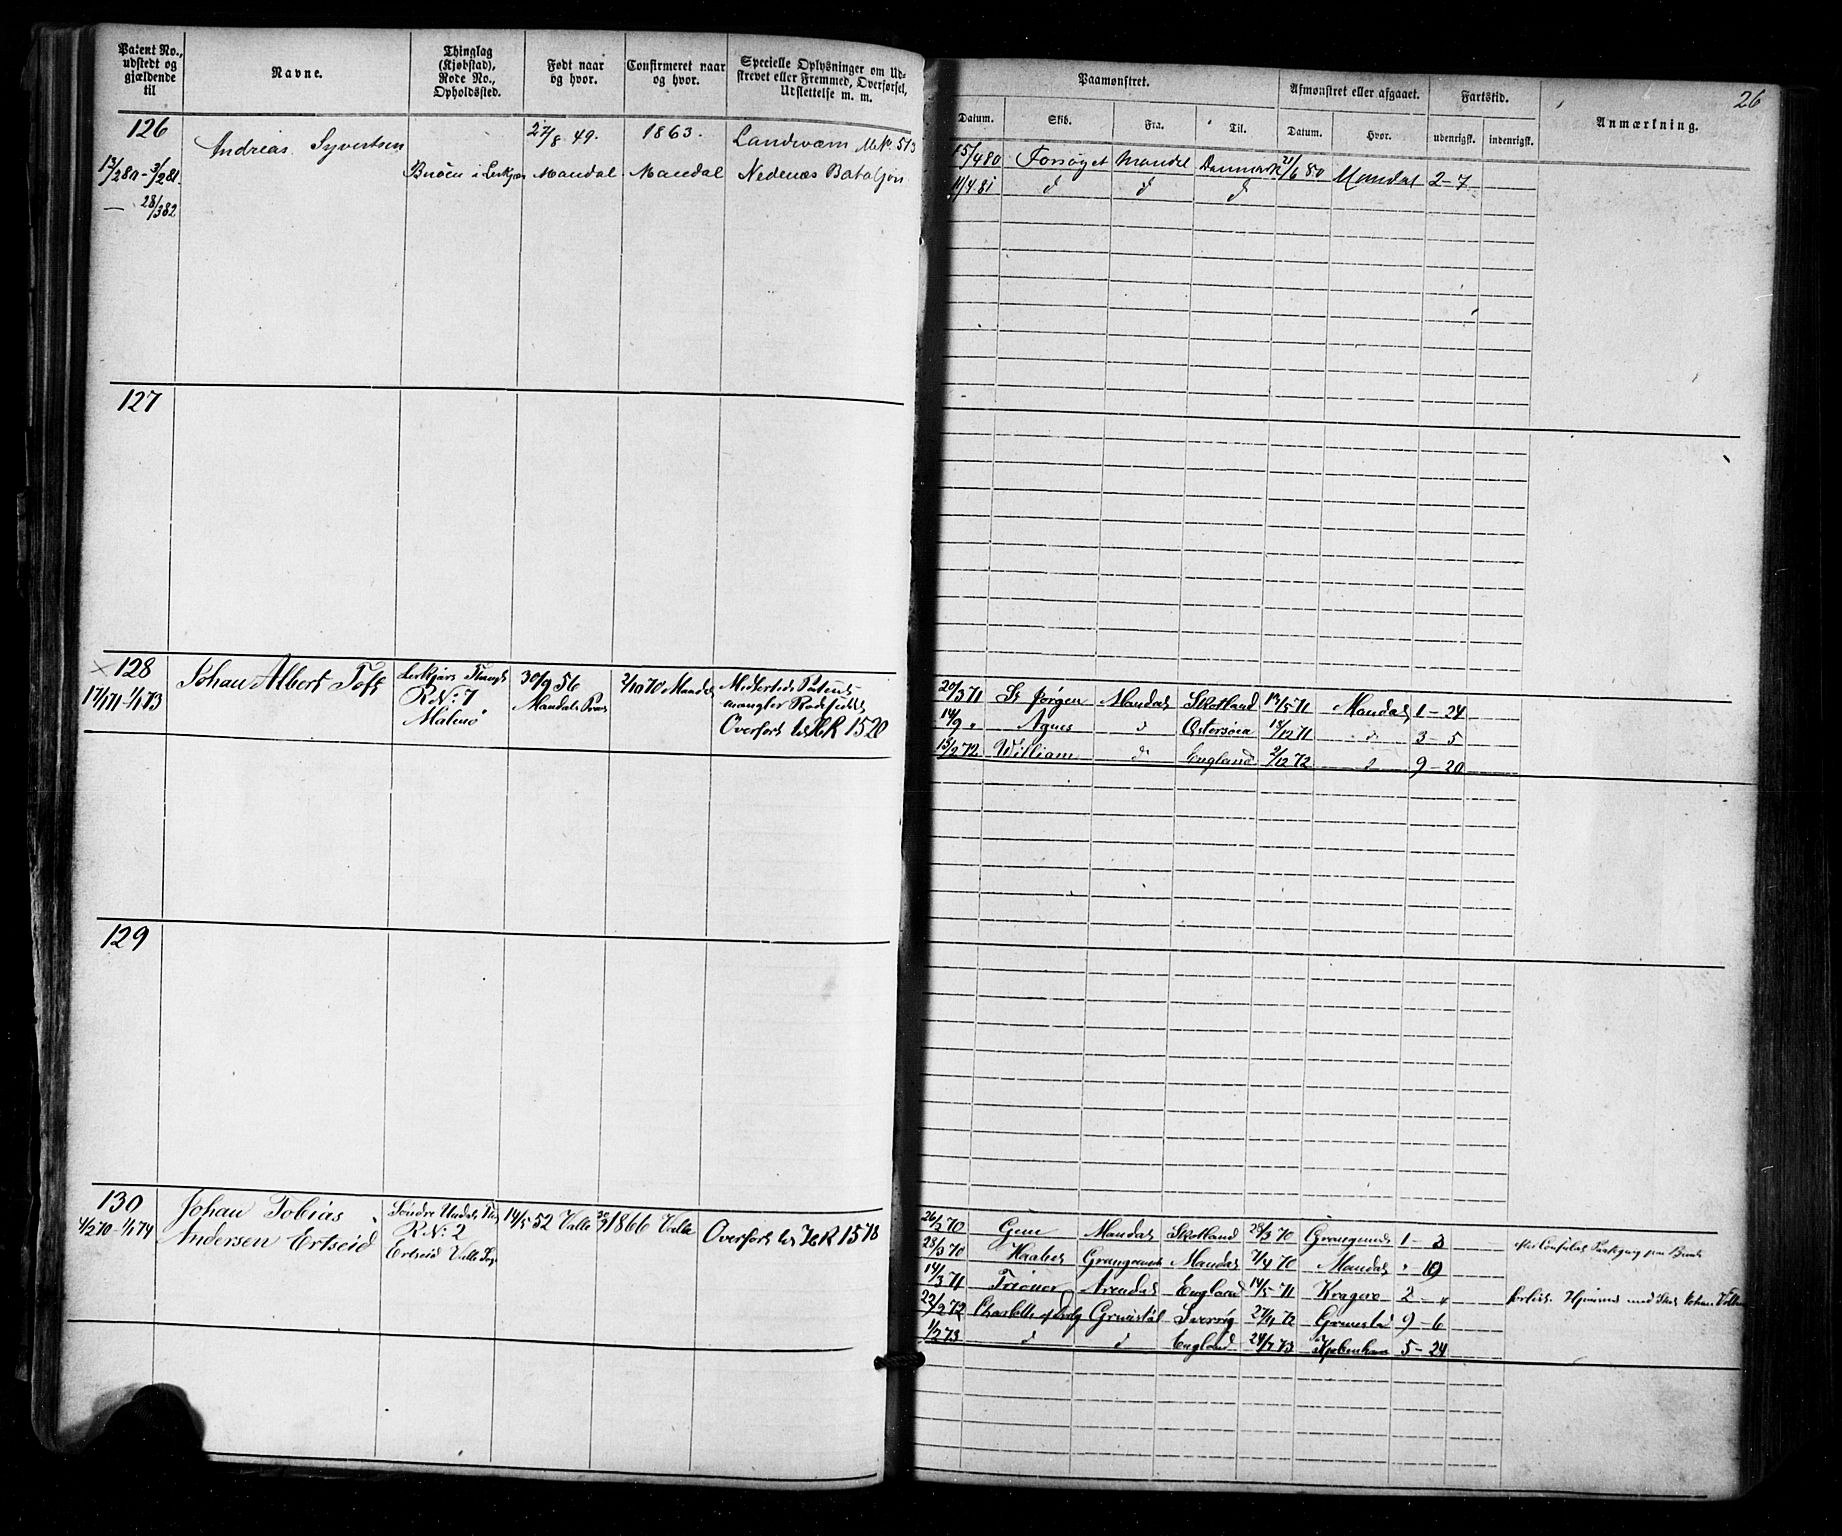 Patent No., udstedt og gjældende til
Navne.
Thinglag (Kjøbstad), Rode No., Opholdssted.
Født naar og hvor.
Confirmeret naar og hvor.
Specielle Oplysninger om Udskrevet eller Fremmed, Overførsel, Udslettelse m. m.
Paamønstret.
Datum.
Skib.
Fra.
Til.
Afmønstret eller afgaaet.
Datum.
Hvor.
Fartstid.
udenrigsk.
indenrigsk.
Anmærkning.
26
126
Andreas Syvertsen
27/8 49.
1863.
Landværn M No. 513
13/2 80 - 3/2 81
Mandal
Mandal
Nedenæs Bataljon
— 28/3 82
15/4 80 Forsøget Mandal Danmark 21/6 80 Mandal 2-7
11/4 81 d d d
127
128
Johan Albert Toft
Lerkjærs
R No: 7
Malmø
30/9 56
2/10 70 Mandal
17/1 71 - 1/1 73
Overført til HR 1520
20/3 71 St Jørgen Mandal Skotland 17/5 71 Mandal 1-24
14/9 " Agnes d Østersøen 18/12 71 d 3-5
15/2 72 William d England 2/12 72 d 9-20
129
130
Johan Tobias
Andersen Ertseid
Søndre Undals
R No: 2
Ertseid Valle Sogn
14/5 52 Valle
1866 Valle
Overført til HR 1578
4/2 70 - 1/1 74
26/2 70 Gem Mandal Skotland 28/3 70 1-3
28/3 70 Mandal 7/4 70 Mandal " 19
14/3 71 Arendal England 14/5 71 Kragerø 2
22/2 72 Charlotte Grimstad Sverrig 27/11 72 Grimstad 9-6
1/2 73 d d England 24/7 73 Kjøbenhavn 5-24